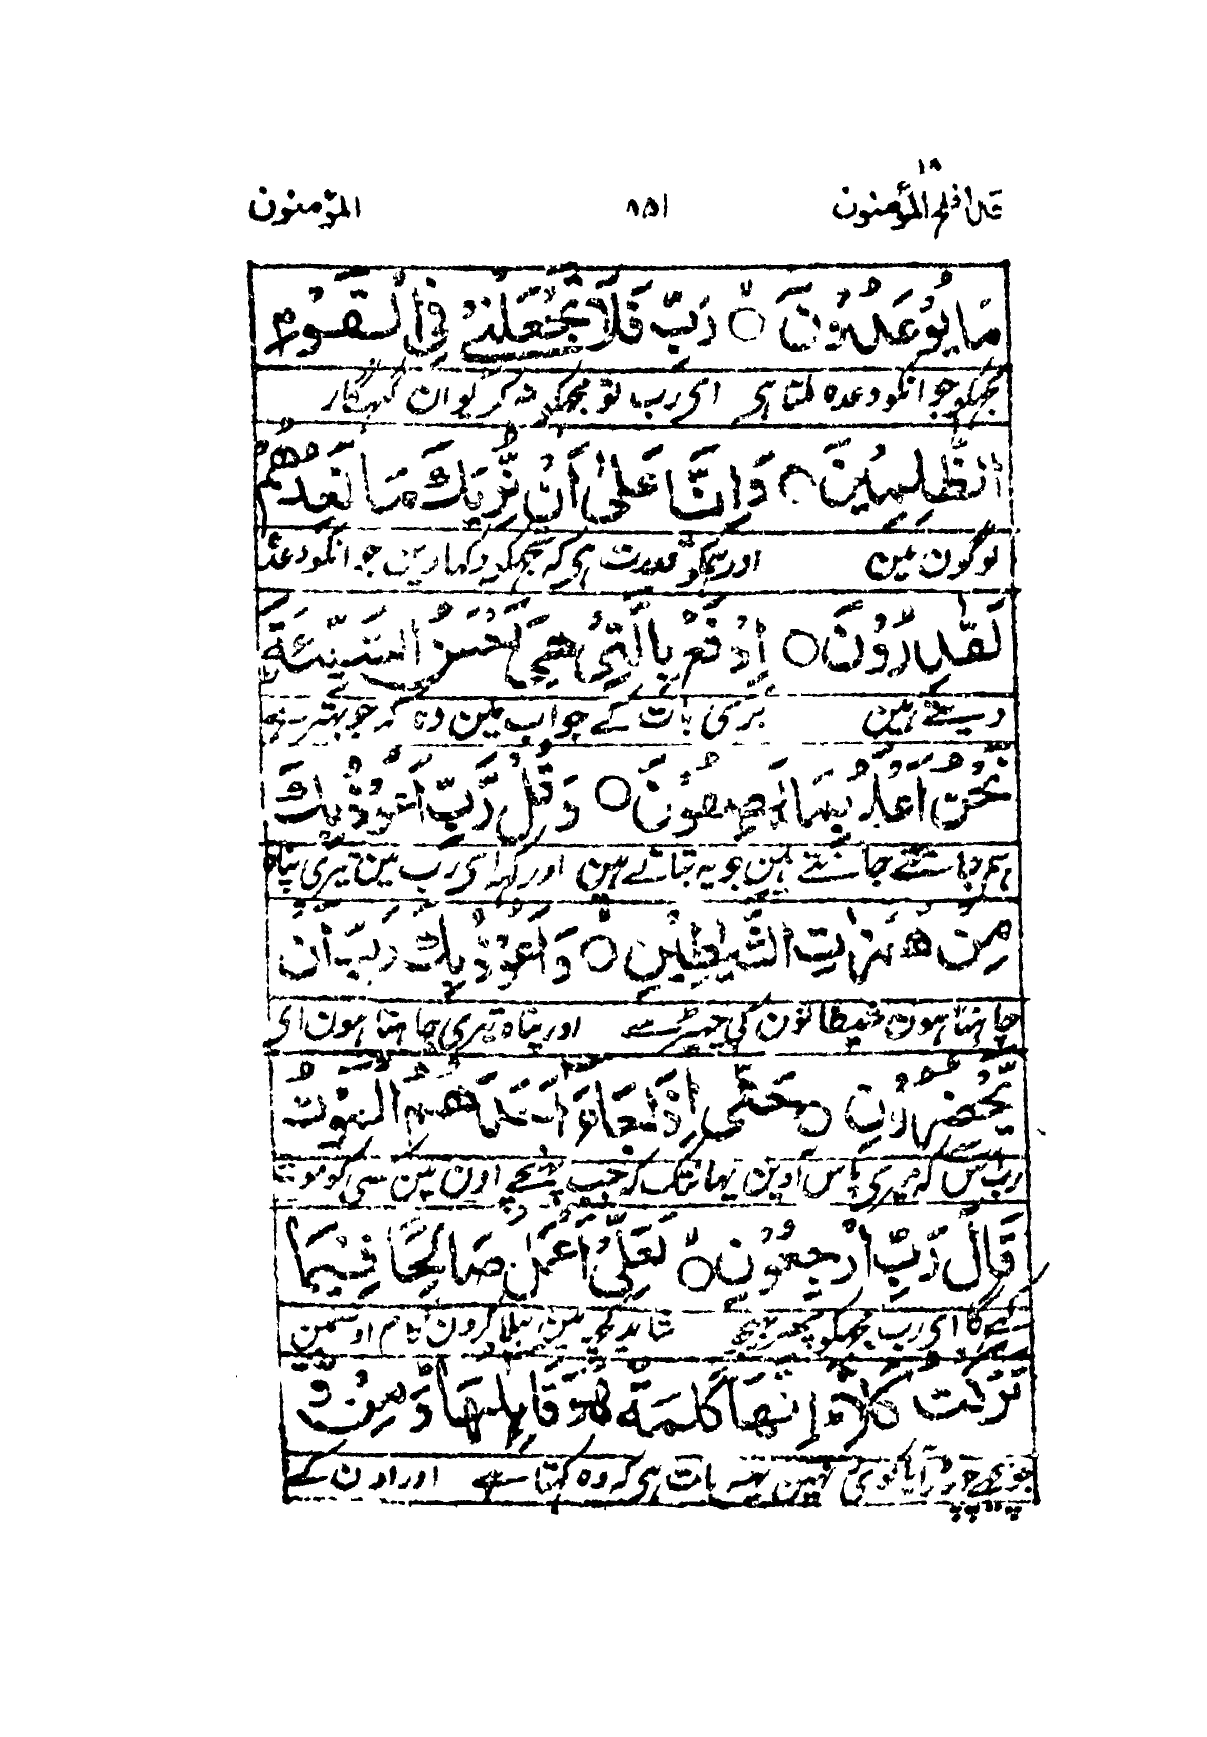 ۱۸
قد افلح المؤمنون ۸۵۱ المؤمنون
مَا يُوْعَدُوْنَ ۝ رَبِّ فَلَا تَجْعَلْنِيْ فِي الْقَوْمِ
مجھکو جو انکو وعدہ ملتا ہی ای رب تو مجھکو نہ کریو ان گنہگار
الظّٰلِمِيْنَ ۝ وَاِنَّا عَلٰى اَنْ نُّرِيَكَ مَا نَعِدُهُمْ
لوگون مین اور ہمکو قدرت ہی کہ تجھکو دکھا دین جو انکو وعدہ
لَقٰدِرُوْنَ ۝ اِدْفَعْ بِالَّتِيْ هِيَ اَحْسَنُ السَّيِّئَةَ
دیتے ہین بُری بات کے جواب مین وہ کہہ جو بہتر ہی
نَحْنُ اَعْلَمُ بِمَا يَصِفُوْنَ ۝ وَقُلْ رَّبِّ اَعُوْذُ بِكَ
ہم جانتے ہین جو یہ بتاتے ہین اور کہہ ای رب مین تیری پناہ
مِنْ هَمَزٰتِ الشَّيٰطِيْنِ ۝ وَاَعُوْذُ بِكَ رَبِّ اَنْ
چاہتا ہون شیطانون کی چھیڑ سے اور پناہ تیری چاہتا ہون ای
يَّحْضُرُوْنِ ۝ حَتّٰى اِذَا جَآءَ اَحَدَهُمُ الْمَوْتُ
رب اس سے کہ میری پاس آوین یہانتک کہ جب پہنچے اون مین کسی کو موت
قَالَ رَبِّ ارْجِعُوْنِ ۝ لَعَلِّيْ اَعْمَلُ صَالِحًا فِيْمَا
کہے گا ای رب مجھکو پھر بھیج شاید کچھ مین بھلا کرون کام اوسمین
تَرَكْتُ كَلَّا اِنَّهَا كَلِمَةٌ هُوَ قَآئِلُهَا وَمِنْ وَّ
جو پیچھے چھوڑ آیا کوئی نہین یہہ بات ہی کہ وہ کہتا ہے اور اون کے